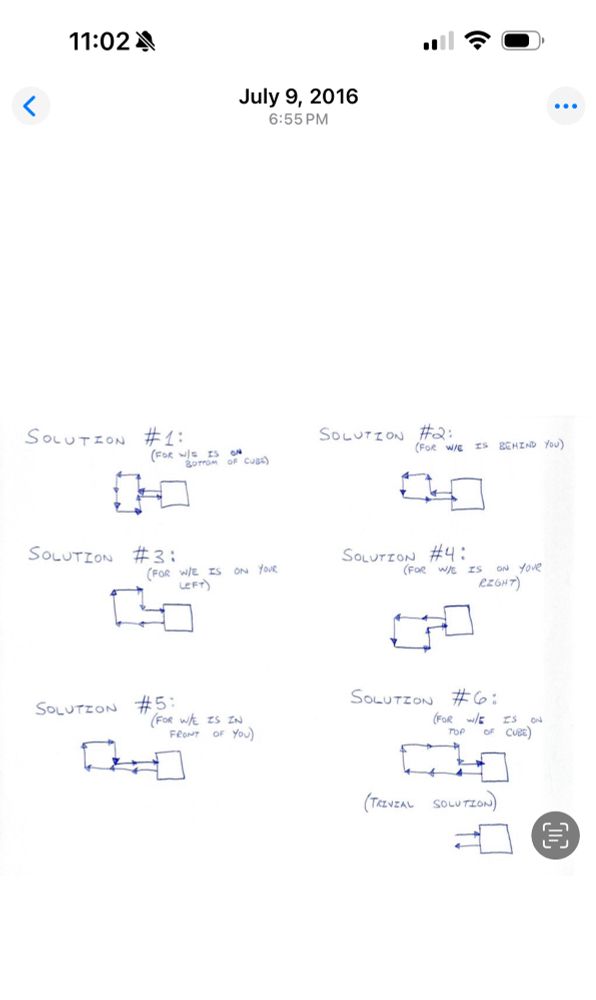 11:02
July 9, 2016
6:55 PM
SOLUTION #1:
(FOR W/E IS ON
BOTTOM OF CUBE)
SOLUTION #2:
(FOR W/E IS BEHIND YOU)
SOLUTION #3:
(FOR W/E IS ON YOUR
LEFT)
SOLUTION #4:
(FOR W/E IS ON YOUR
RIGHT)
SOLUTION #5:
(FOR W/E IS IN
FRONT OF YOU)
SOLUTION #6:
(FOR W/E IS ON
TOP OF CUBE)
(TRIVIAL SOLUTION)